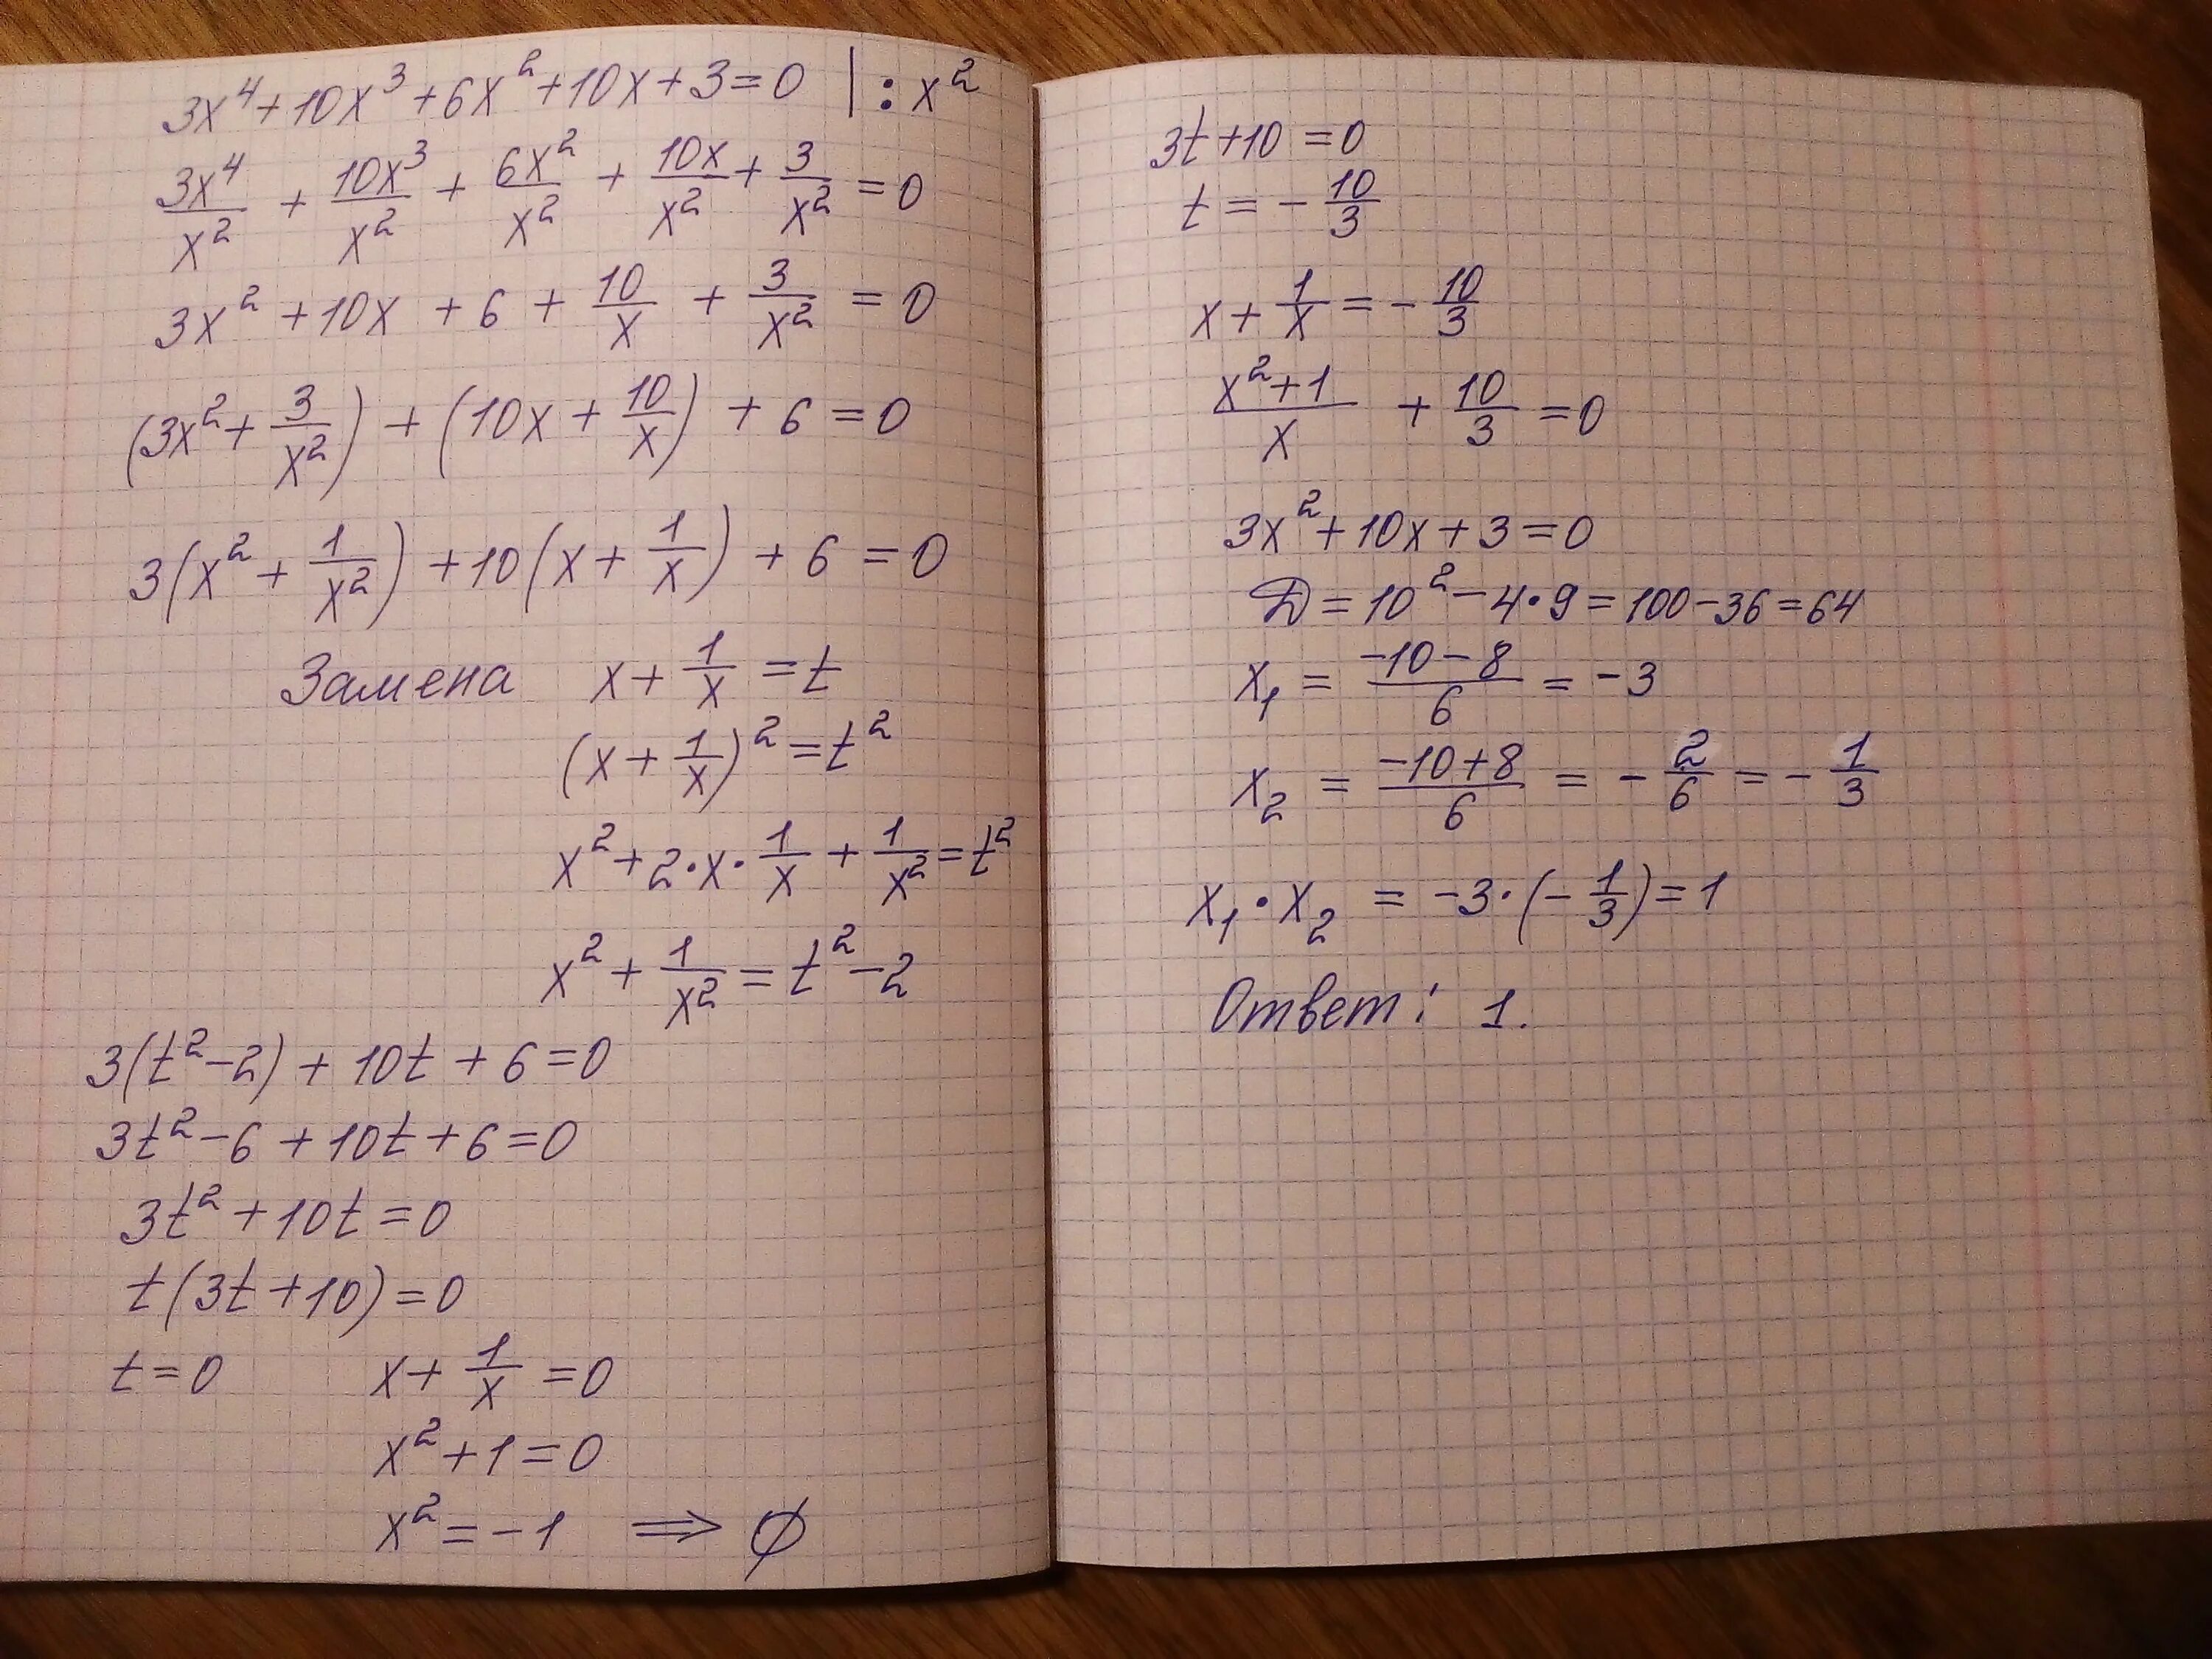 3x⁴ + 10x³ + 6x² + 10x + 3 = 0 | : x²
3x⁴/x² + 10x³/x² + 6x²/x² + 10x/x² + 3/x² = 0
3x² + 10x + 6 + 10/x + 3/x² = 0
(3x² + 3/x²) + (10x + 10/x) + 6 = 0
3(x² + 1/x²) + 10(x + 1/x) + 6 = 0
Замена x + 1/x = t
(x + 1/x)² = t²
x² + 2·x·1/x + 1/x² = t²
x² + 1/x² = t² - 2
3(t² - 2) + 10t + 6 = 0
3t² - 6 + 10t + 6 = 0
3t² + 10t = 0
t(3t + 10) = 0
t = 0 x + 1/x = 0
x² + 1 = 0
x² = -1 ⟹ ∅
3t + 10 = 0
t = -10/3
x + 1/x = -10/3
(x² + 1)/x + 10/3 = 0
3x² + 10x + 3 = 0
D = 10² - 4·9 = 100 - 36 = 64
x₁ = (-10 - 8)/6 = -3
x₂ = (-10 + 8)/6 = -2/6 = -1/3
x₁·x₂ = -3·(-1/3) = 1
Ответ: 1.